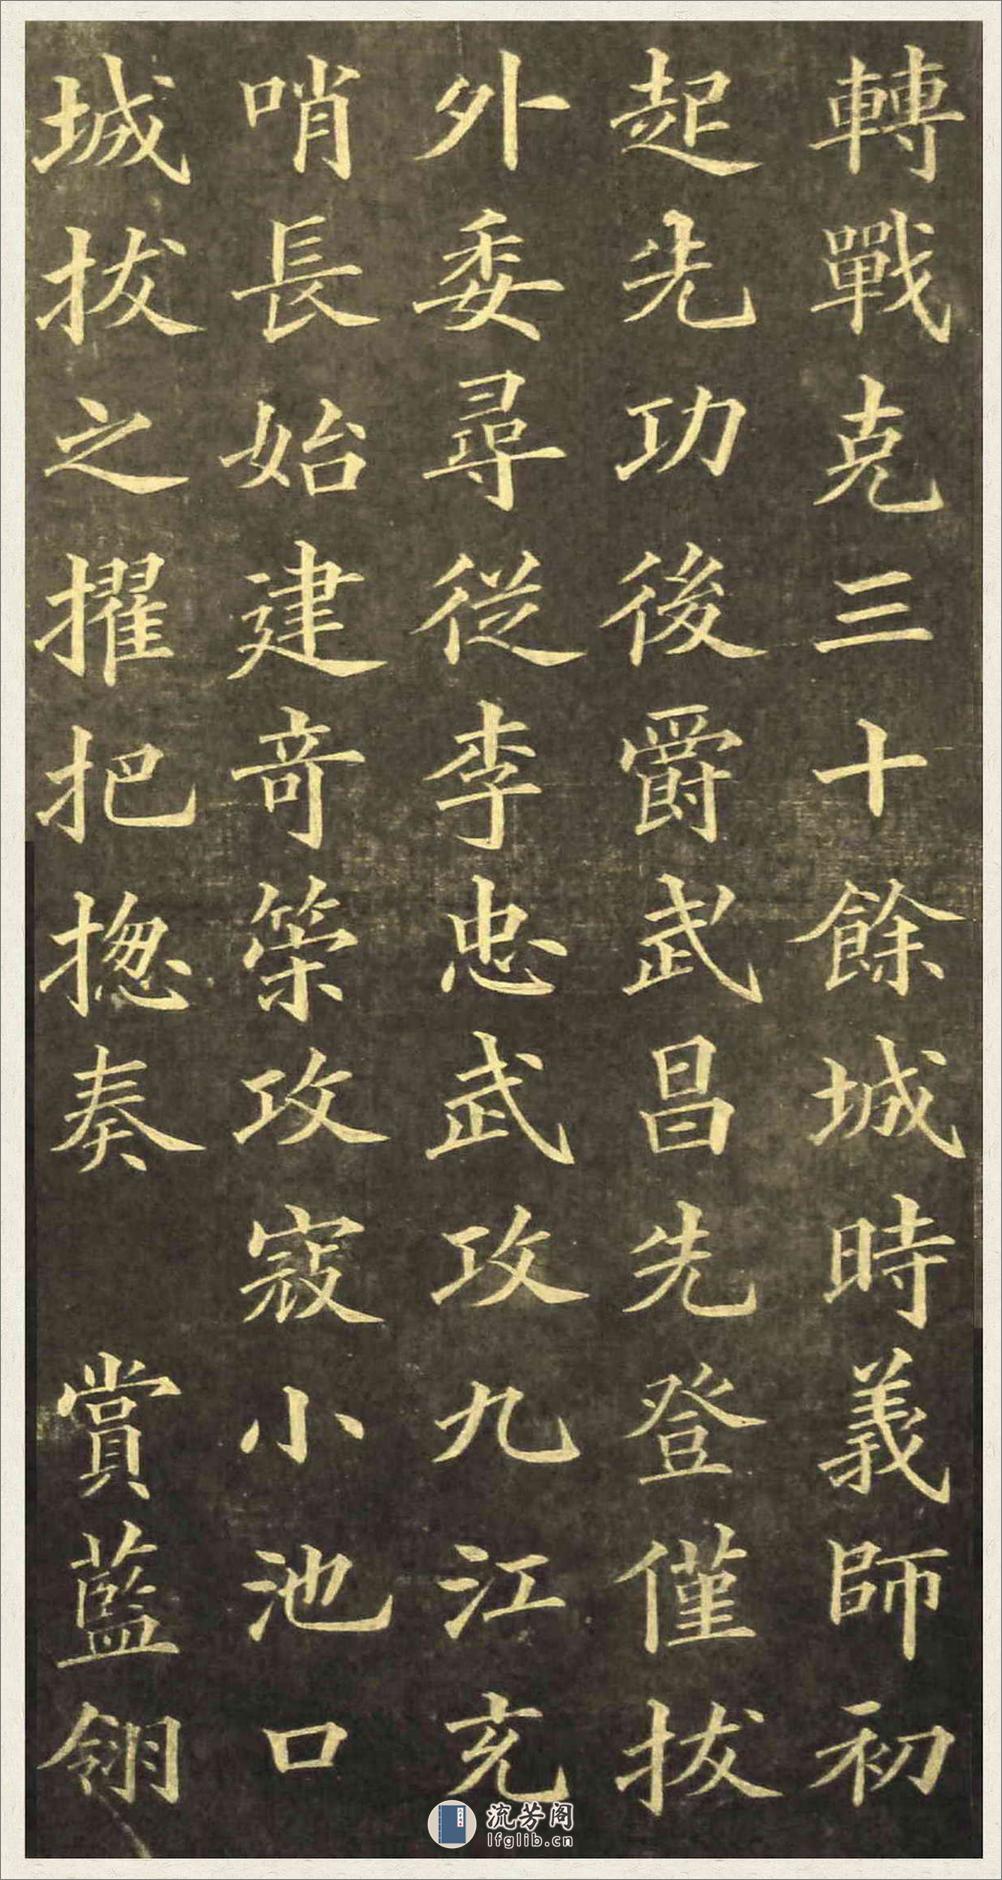 轉戰克三十餘城時義師初
起先功後爵武昌先登僅拔
外委尋從李忠武攻九江充
哨長始建奇策攻寇小池口
城拔之擢把揔奏 賞藍翎
流芳阁
lfglib.cn